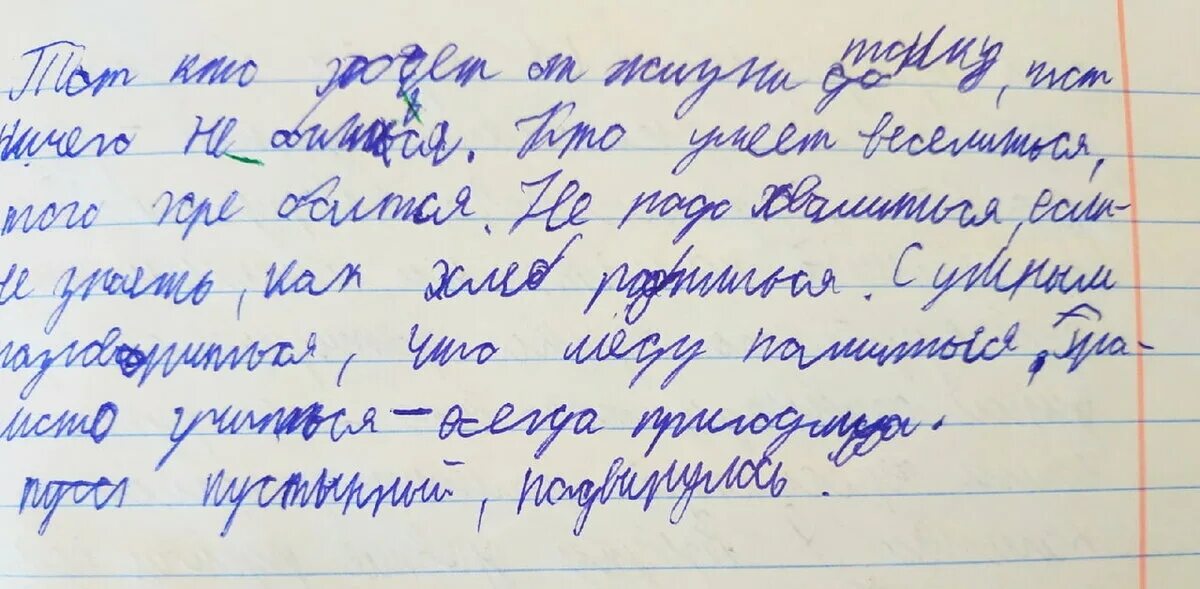 Тот кто ходет от жизни толку, тот
ничего не боится. Кто умеет веселиться,
того горе боится. Не надо хвалиться, если
не знаеть, как хлеб родиться. С умным
разговориться, что мёду напиться. Гра-
мота учиться – всегда пригодица.
пуст пустынный, подвинулось.